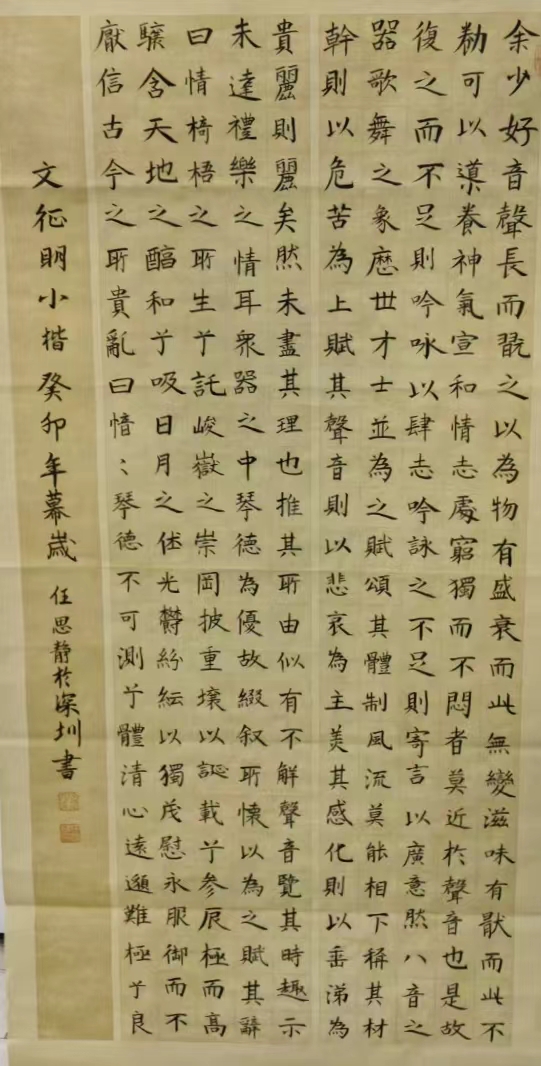 余少好音聲長而翫之以為物有盛衰而此無變滋味有猒而此不
勌可以導養神氣宣和情志處窮獨而不悶者莫近於聲音也是故
復之而不足則吟咏以肆志吟詠之不足則寄言以廣意然八音之
器歌舞之象歷世才士並為之賦頌其體制風流莫能相下稱其材
幹則以危苦為上賦其聲音則以悲哀為主美其感化則以垂涕為
貴麗則麗矣然未盡其理也推其所由似有不解聲音覽其時趣示
未達禮樂之情耳衆器之中琴德為優故綴叙所懷以為之賦其辭
曰情椅梧之所生兮託峻嶽之崇岡披重壤以誕載兮参辰極而高
驤含天地之醕和兮吸日月之休光鬱紛紜以獨茂慰永服御而不
厭信古今之所貴亂曰愔〻琴德不可測兮體清心遠邈難極兮良
文征明小楷癸卯年幕歲 任思靜於深圳書